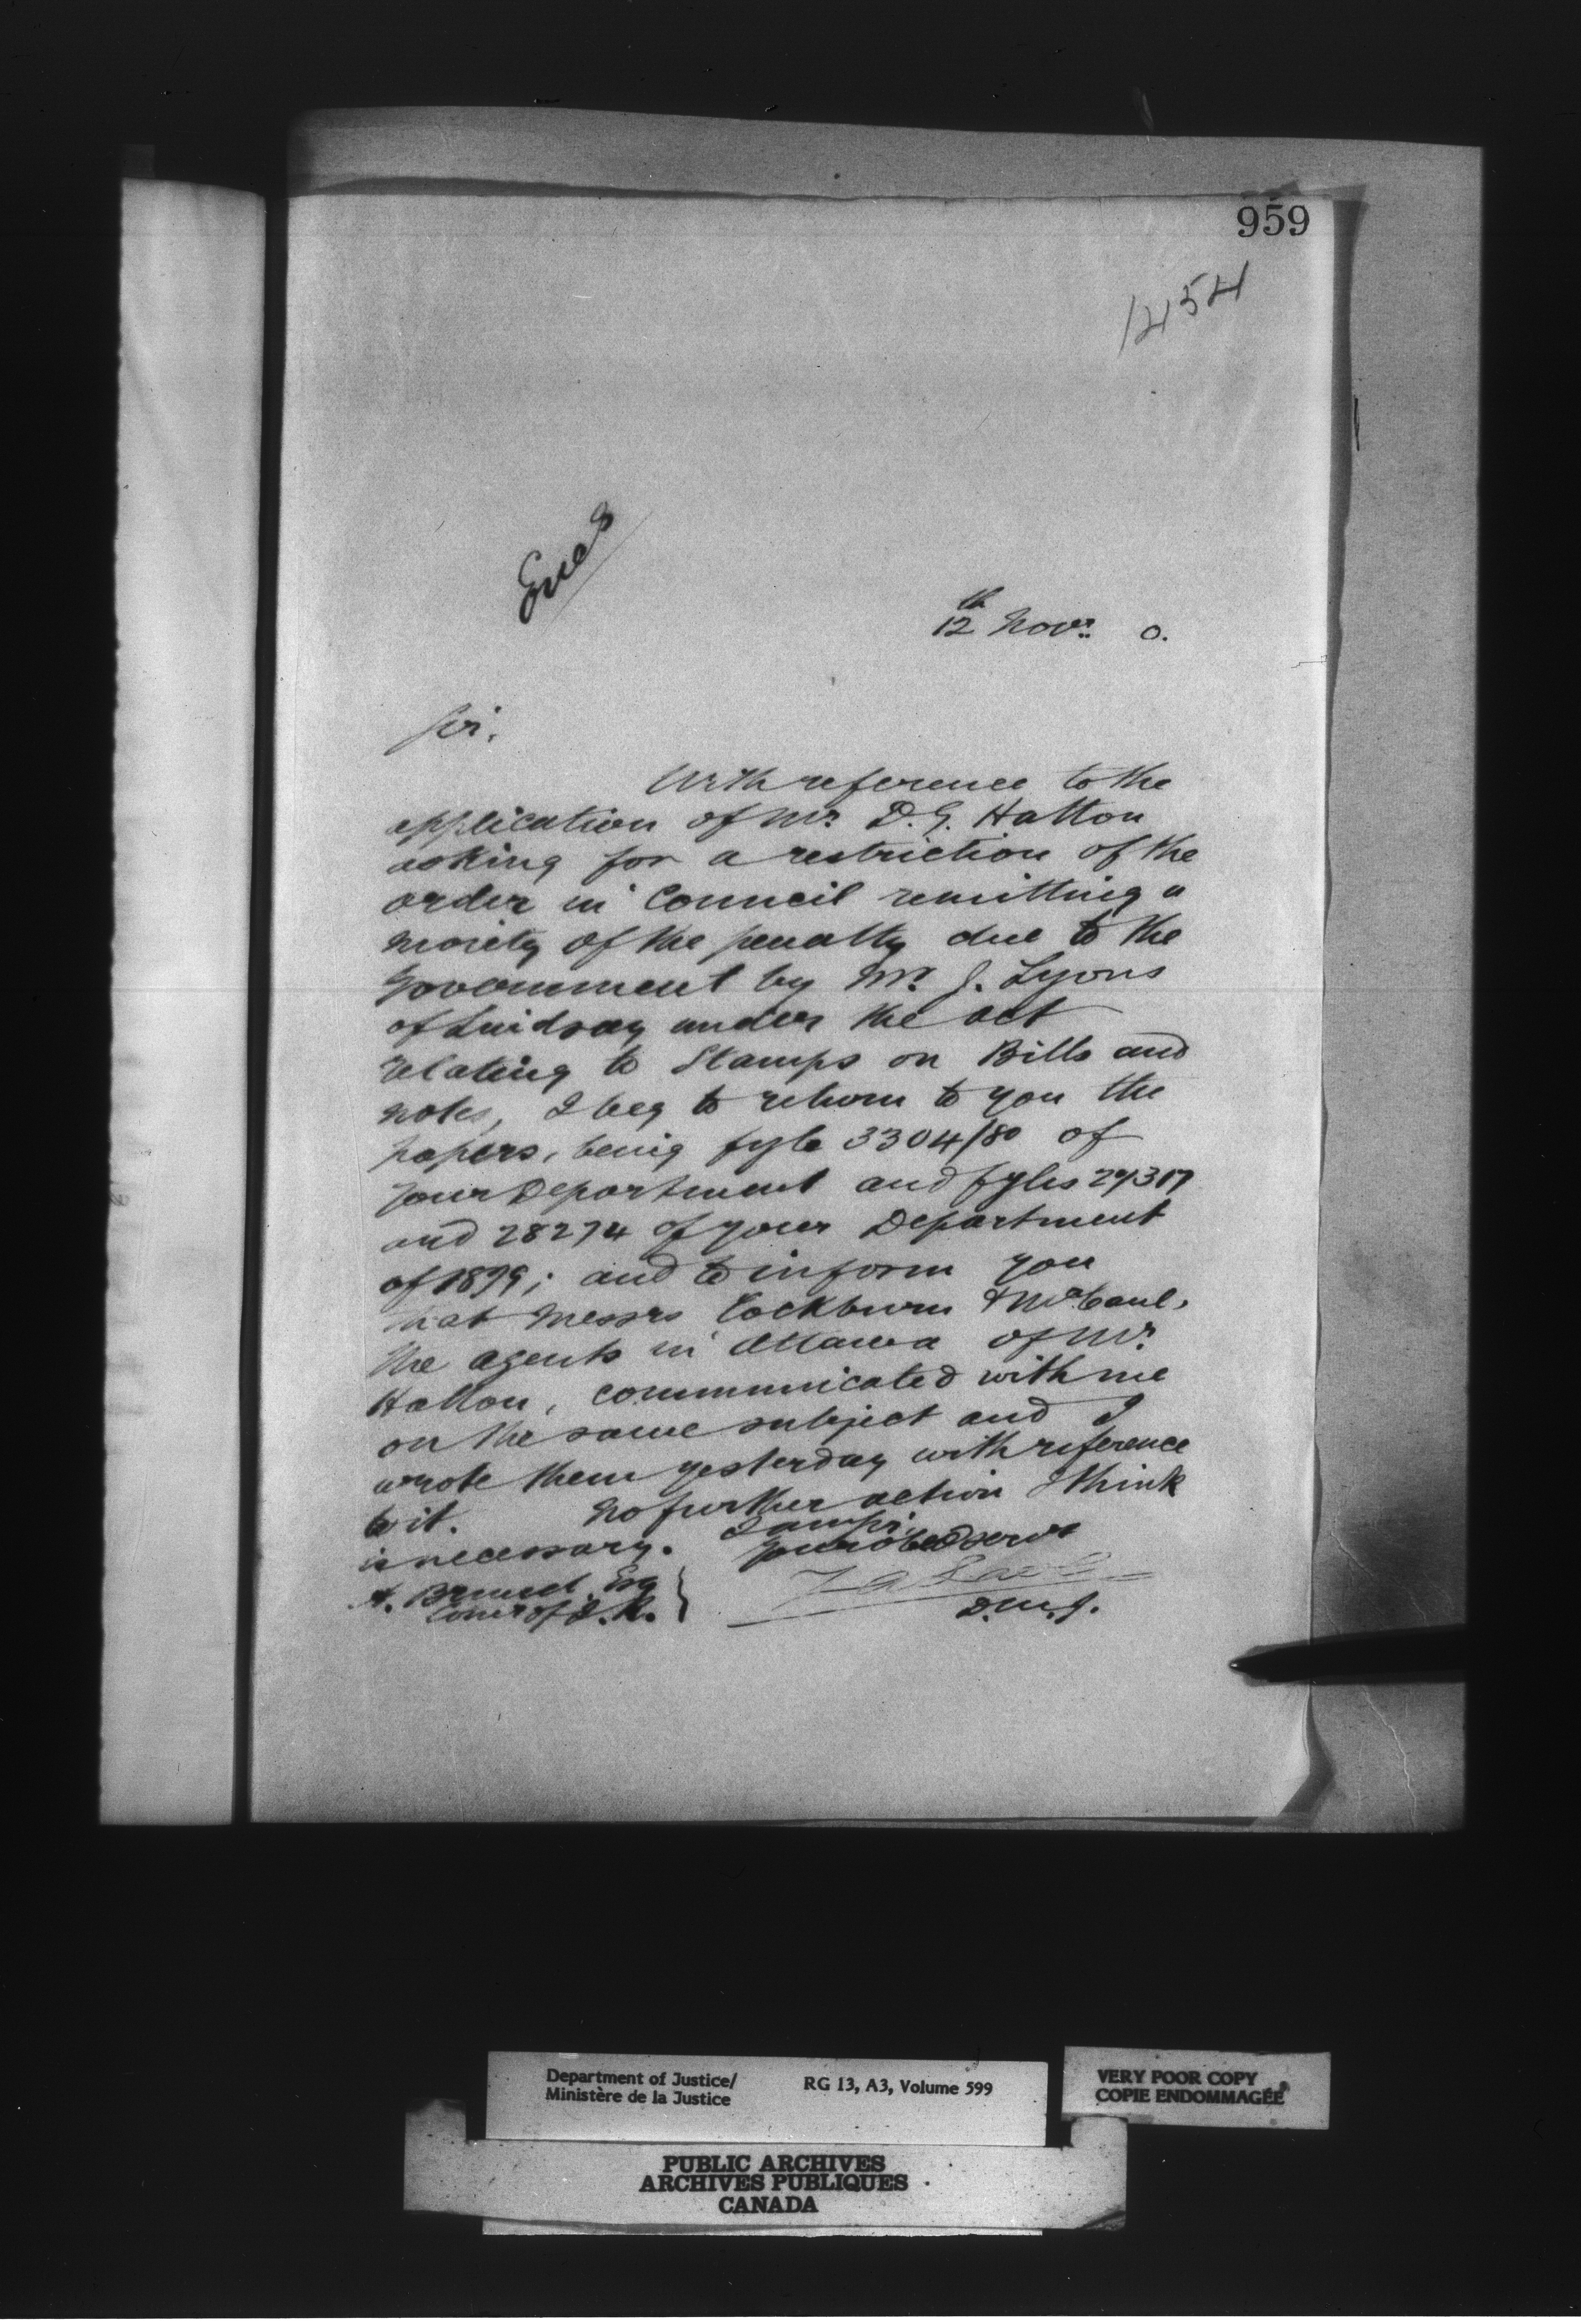 959
1454
Encs
12th Novr. 0.
Sir,
With reference to the
application of Mr. D. G. Hatton
asking for a restriction of the
order in Council remitting a
moiety of the penalty due to the
Government by Mr. J. Lyons
of Lindsay under the act
relating to Stamps on Bills and
notes, I beg to return to you the
papers, being fyle 3304/80 of
your Department and fyles
and 28274 of your Department
of 1879; and to inform you
that Messrs Cockburn & McCaul,
the agents in Ottawa of Mr.
Hatton, communicated with me
on the same subject and I
wrote them yesterday with reference
to it. No further action I think
is necessary. I am sir,
your obed servt
A. Brunel Esq
Comr of I. R.
Z A Lash
D.M.J.
Department of Justice/
Ministère de la Justice
RG 13, A3, Volume 599
VERY POOR COPY
COPIE ENDOMMAGÉE
PUBLIC ARCHIVES
ARCHIVES PUBLIQUES
CANADA